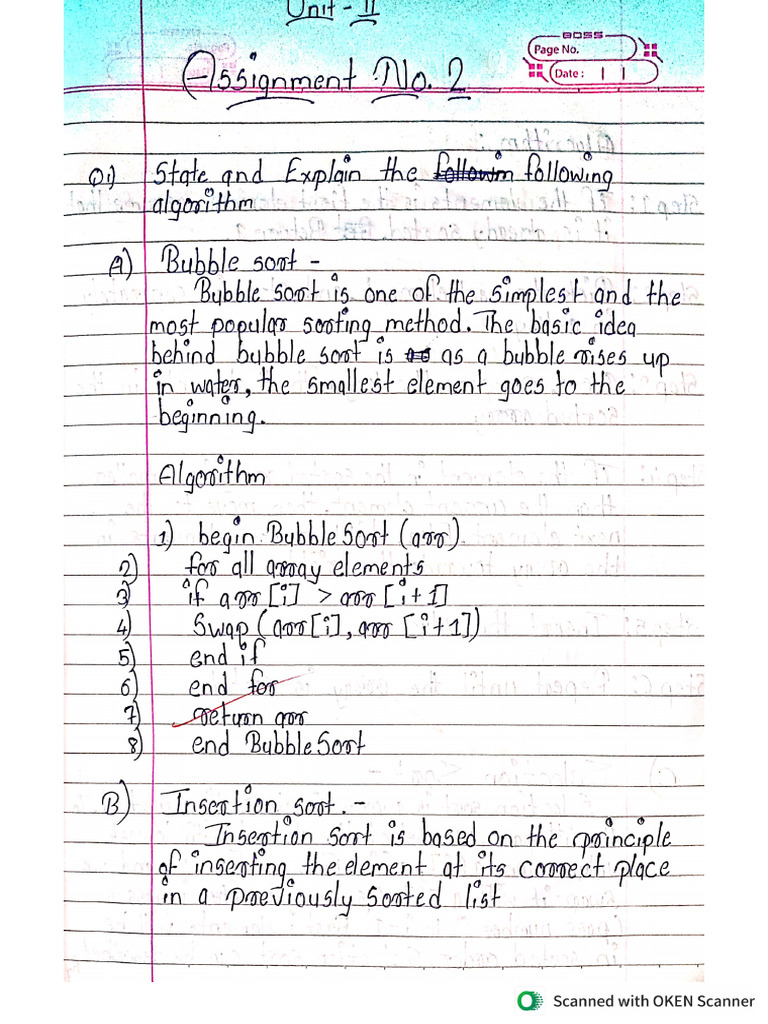 Unit - II
BOSS
Page No.
Assignment No. 2
Date :
Q1) State and Explain the following
algorithm
A) Bubble sort -
Bubble sort is one of the simplest and the
most popular sorting method. The basic idea
behind bubble sort is as a bubble rises up
in water, the smallest element goes to the
beginning.
Algorithm
1) begin BubbleSort (arr)
2) for all array elements
3) if arr [i] > arr [i+1]
4) Swap (arr[i], arr [i+1])
5) end if
6) end for
7) return arr
8) end BubbleSort
B) Insertion sort. -
Insertion sort is based on the principle
of inserting the element at its correct place
in a previously sorted list
Scanned with OKEN Scanner